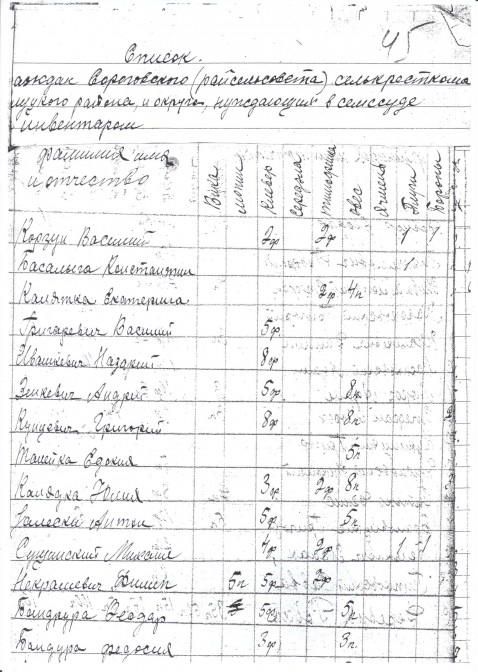 45
Список.
граждан Вороговского (райсельсовета) селькресткома
района, и округа, нуждающия в семссуде
инвентаром
фамилия имя
и отчество
Вика
клевер
середела
тимофеевка
овес
Ячмень
Плуги
Бороны
Корзун Василий 2ф 2ф 1 1
Басалыга Константин 1
Калятка Екатерина 2ф 4п
Григаревич Василий 5ф
Ивашкевич Назарий 8ф
Зенкевич Андрей 5ф 8п
Кунцевич Григорий 8ф 8п
Танейка Евдокия 5п
Калядка Юлия 3ф 2ф 8п
Залескі Антон 5ф 5п
Сущинский Михаил 4ф 2ф 1 1
Некрашевич 5п 5ф 2ф
Бандрура Феодар 5ф 5п
Бандура Федосия 3ф 3п